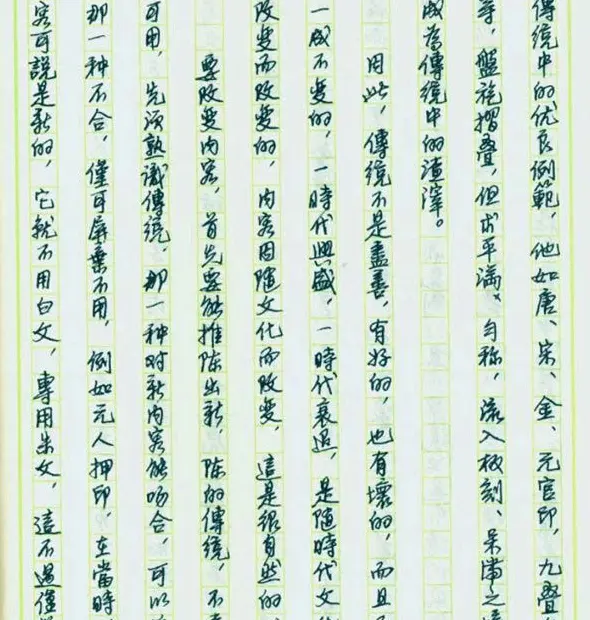 傳統中的优良例範，他如唐、宋、金、元官印，九疊
等，盤旋摺疊，但求平滿、勻称，流入板刻、呆滿之
成为傳統中的渣滓。
因此，傳統不是盡善，有好的，也有壞的，而且
一成不变的，一時代興盛，一時代衰退，是隨時代文
改变而改变的，内容因随文化而改变，這是很自然的
要改变内容，首先要能推陈出新，陈的傳統，不
可用，先須熟識傳統，那一种对新内容能吻合，可以
那一种不合，僅可屏棄不用，例如元人押印，在當時
容可說是新的，它就不用白文，專用朱文，這不過僅